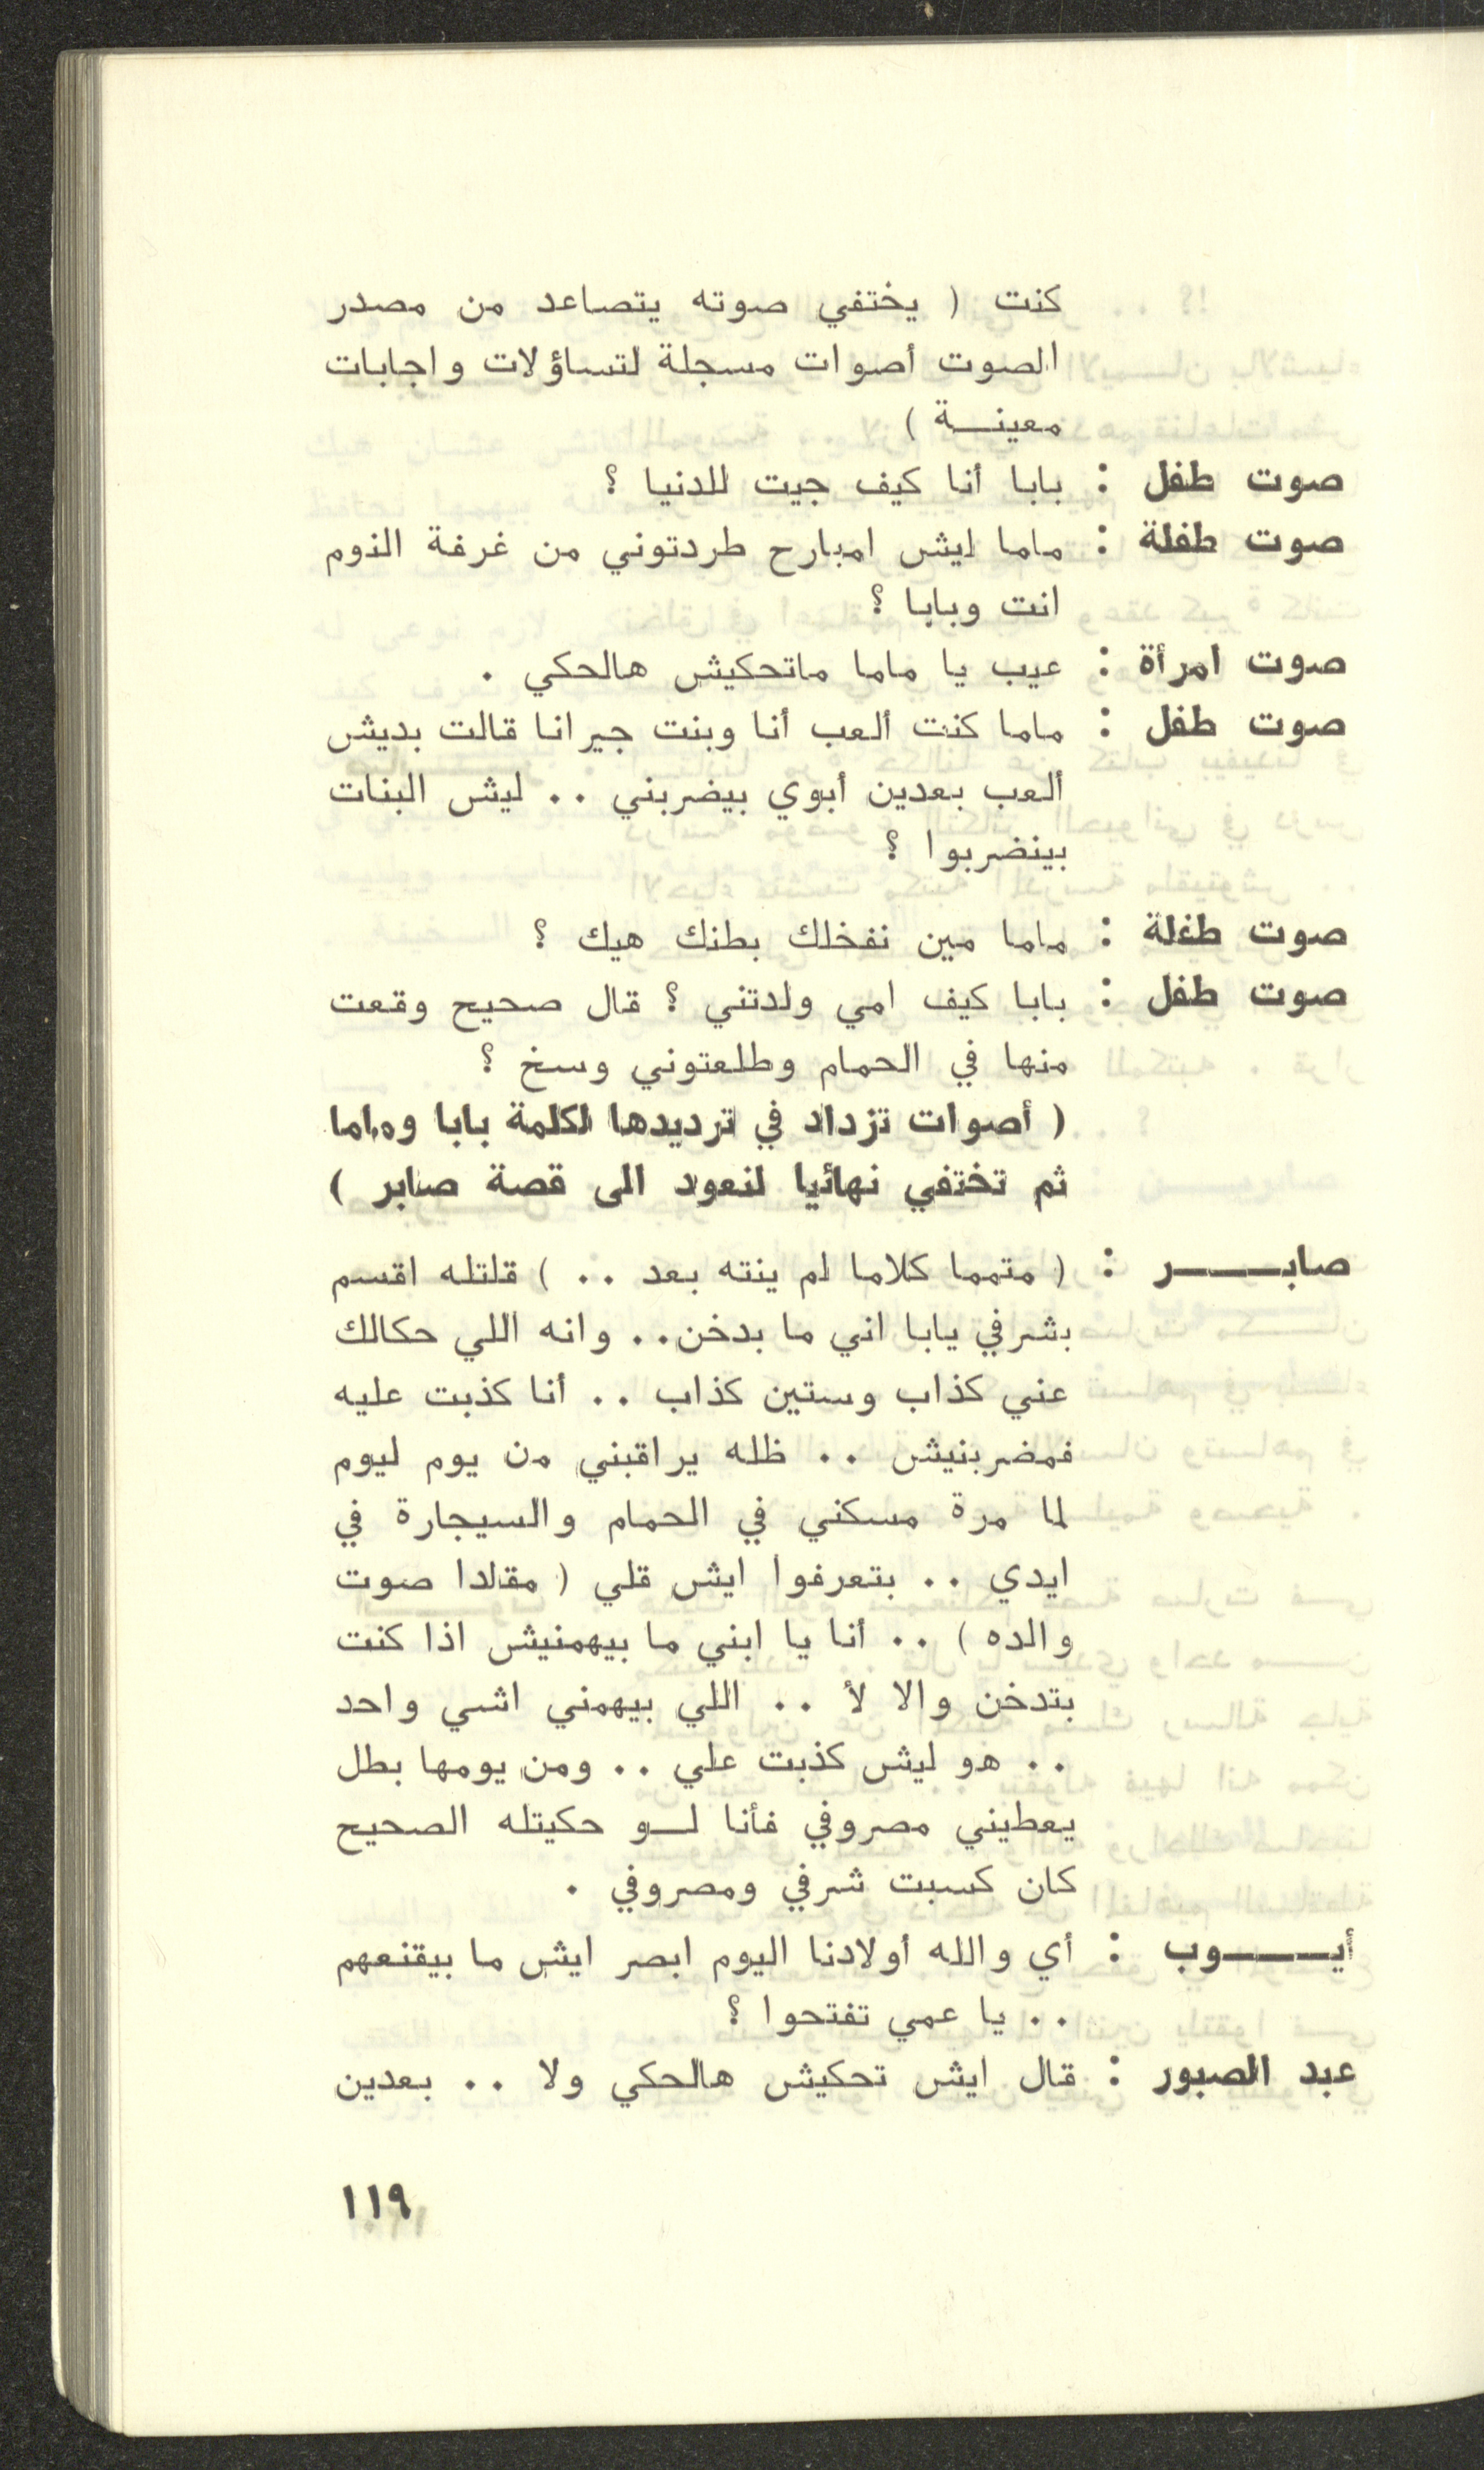 كنت ( يختفي صوته يتصاعد من مصدر
الصوت أصوات مسجلة لتساؤلات واجابات
معينـــة )
صوت طفل : بابا أنا كيف جيت للدنيا ؟
صوت طفلة : ماما ليش امبارح طردتوني من غرفة النوم
انت وبابا ؟
صوت امرأة : عيب يا ماما ماتحكيش هالحكي .
صوت طفل : ماما كنت ألعب أنا وبنت جيرانا قالت بديش
ألعب بعدين أبوي بيضربني .. ليش البنات
بينضربوا ؟
صوت طفلة : ماما مين نفخلك بطنك هيك ؟
صوت طفل : بابا كيف امي ولدتني ؟ قال صحيح وقعت
منها في الحمام وطلعتوني وسخ ؟
( أصوات تزداد في ترديدها لكلمة بابا وماما
ثم تختفي نهائيا لنعود الى قصة صابر )
صابـــــر : ( متمما كلاما لم ينته بعد .. ) قلتله اقسم
بشرفي يابا اني ما بدخن.. وانه اللي حكالك
عني كذاب وستين كذاب .. أنا كذبت عليه
فمضربنيش .. ظله يراقبني من يوم ليوم
لما مرة مسكني في الحمام والسيجارة في
ايدي .. بتعرفوا ايش قلي ( مقلدا صوت
والده ) .. أنا يا ابني ما بيهمنيش اذا كنت
بتدخن والا لأ .. اللي بيهمني اشي واحد
.. هو ليش كذبت علي .. ومن يومها بطل
يعطيني مصروفي فأنا لــو حكيتله الصحيح
كان كسبت شرفي ومصروفي .
أيـــــوب : أي والله أولادنا اليوم ابصر ايش ما بيقنعهم
.. يا عمي تفتحوا ؟
عبد الصبور : قال ايش تحكيش هالحكي ولا .. بعدين
١١٩